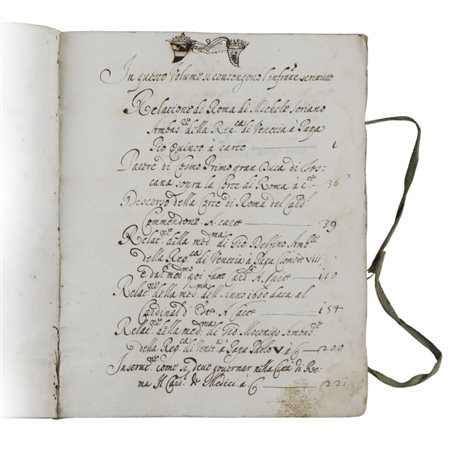 In questo Volume si contengono l'infrascritture
Relatione di Roma di Michele Soriano
Amb.re della Rep.ca di Venetia à Papa
Pio Quinto à carte 1
Parere di Cosmo Primo gran Duca di Tos-
cana sopra la Corte di Roma à c. 36
Discorso della Corte di Roma del Card.l
Commendone A carte 39
Relat.ne della med.ma di Gio Delfino Amb.re
della Rep.ca di Venetia à Papa Clemente VIII
A carte 110
Relat.ne della med.ma dell'Anno 1600 data al
Cardinal d' A carte 154
Relat.ne della med.ma di Gio Mocenigo Amb.re
della Rep.ca di Venet.a à Papa Paolo V à c. 200
Instrut.ne come si deve governar nella Città di Ro-
ma Il Card. de Medici à c. 221